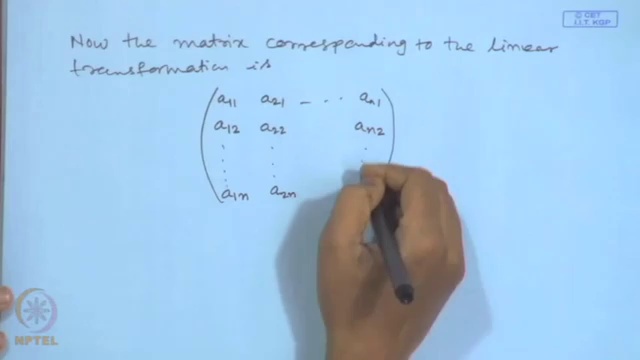 © CET
I.I.T. KGP
Now the matrix corresponding to the linear
transformation is
a11 a21 - ... an1
a12 a22 an2
a1n a2n
NPTEL